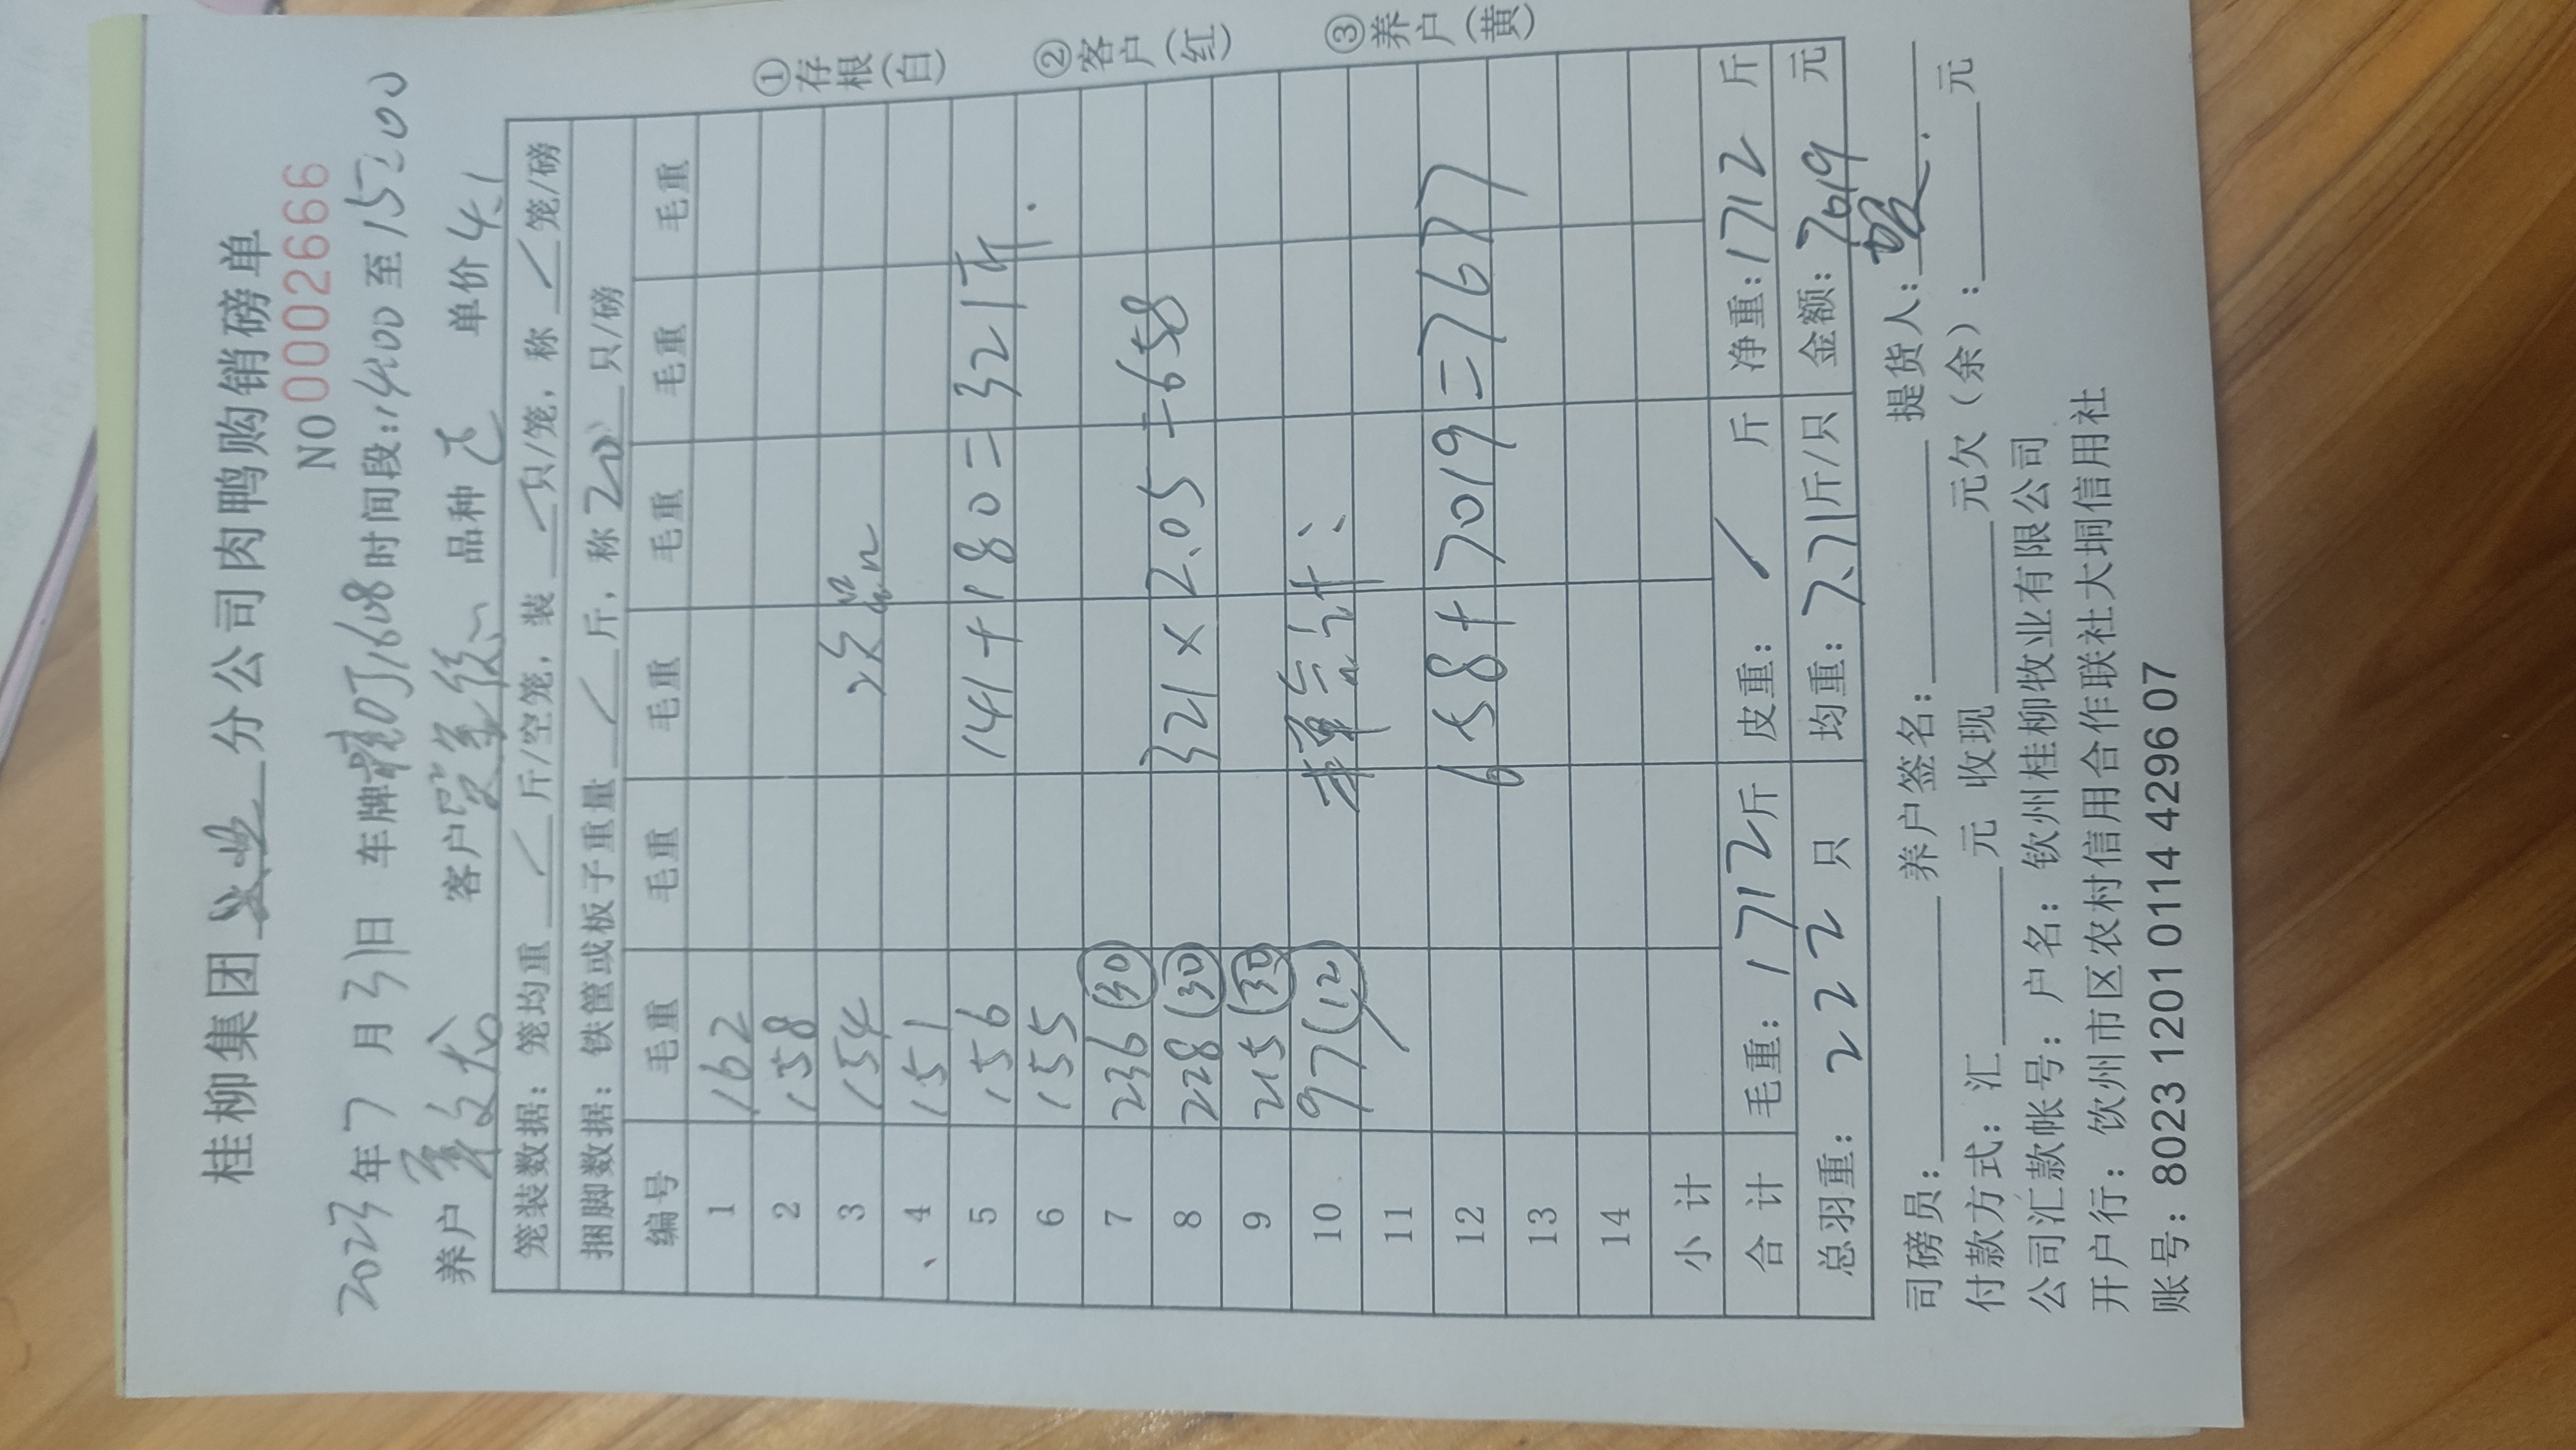 桂柳集团 分公司肉鸭购销磅单
NO 0002666
2023年7月31日 车牌 1608 时间段:1400至15:00
养户 客户 品种 单价4.1
笼装数据:笼均重 / 斤/空笼,装 / 只/笼,称 / 笼/磅
捆脚数据:铁筐或板子重量 / 斤,称 20 只/磅
编号 毛重 毛重 毛重 毛重 毛重 毛重
1 162
2 158
3 154 次
4 151
5 156 141+180=321斤.
6 155
7 236 (30)
8 228 (30) 321×2.05=658
9 215 (30)
10 97 (12) 合计:
11
12 658+7019=7677
13
14
小计
合计 毛重:1712斤 皮重: / 斤 净重:1712斤
总羽重:222只 均重:7.71斤/只 金额:7019元
司磅员: 养户签名: 提货人:
付款方式:汇 元 收现 元欠(余): 元
公司汇款帐号:户名:钦州桂柳牧业有限公司
开户行:钦州市区农村信用合作联社大垌信用社
账号:8023 1201 0114 4296 07
①存根(白) ②客户(红) ③养户(黄)